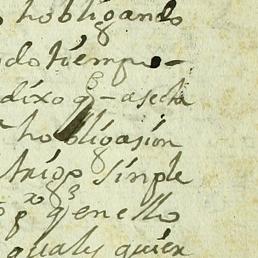 hobligando
do tiempo
dixo q̃ - asecta
hobligasion
trigo simple
xo p q̃ en ello
qualq quier